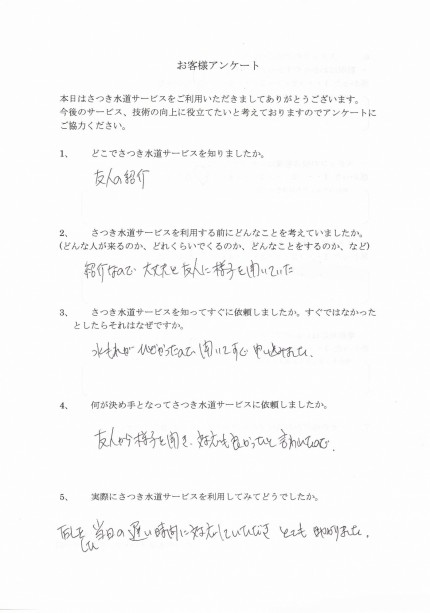 お客様アンケート
本日はさつき水道サービスをご利用いただきましてありがとうございます。
今後のサービス、技術の向上に役立てたいと考えておりますのでアンケートに
ご協力ください。
1、 どこでさつき水道サービスを知りましたか。
友人の紹介
2、 さつき水道サービスを利用する前にどんなことを考えていましたか。
(どんな人が来るのか、どれくらいでくるのか、どんなことをするのか、など)
紹介なので 大丈夫と友人に様子を聞いていた
3、 さつき水道サービスを知ってすぐに依頼しましたか。すぐではなかった
としたらそれはなぜですか。
水もれが ひどかったので 聞いてすぐ 申し込みました、
4、 何が決め手となってさつき水道サービスに依頼しましたか。
友人から様子を聞き、対応も良かったと 言われたので、
5、 実際にさつき水道サービスを利用してみてどうでしたか。
当日の 遅い時間に対応していただき とても 助かりました。